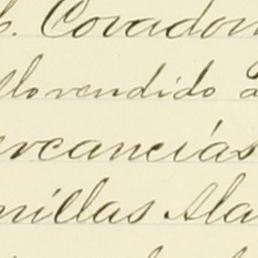 Covadon
lo vendido a
rcancías
nillas Ala